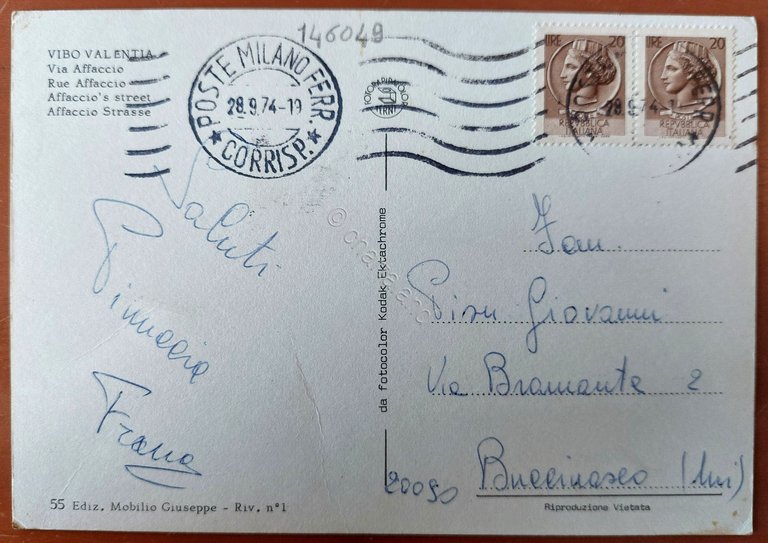 146049
VIBO VALENTIA
Via Affaccio
Rue Affaccio
Affaccio's street
Affaccio Strasse
POSTE MILANO FERR.
28.9.74-19
CORRISP.
LIRE 20
REPUBBLICA
ITALIANA
LIRE 20
REPUBBLICA
ITALIANA
28.9.74-19
Saluti
Pinuccia
Franco
da fotocolor Kodak Ektachrome
Fam.
Pisu Giovanni
Via Bramante 2
20090 Buccinasco (Mi)
55 Ediz. Mobilio Giuseppe - Riv. n°1
Riproduzione Vietata